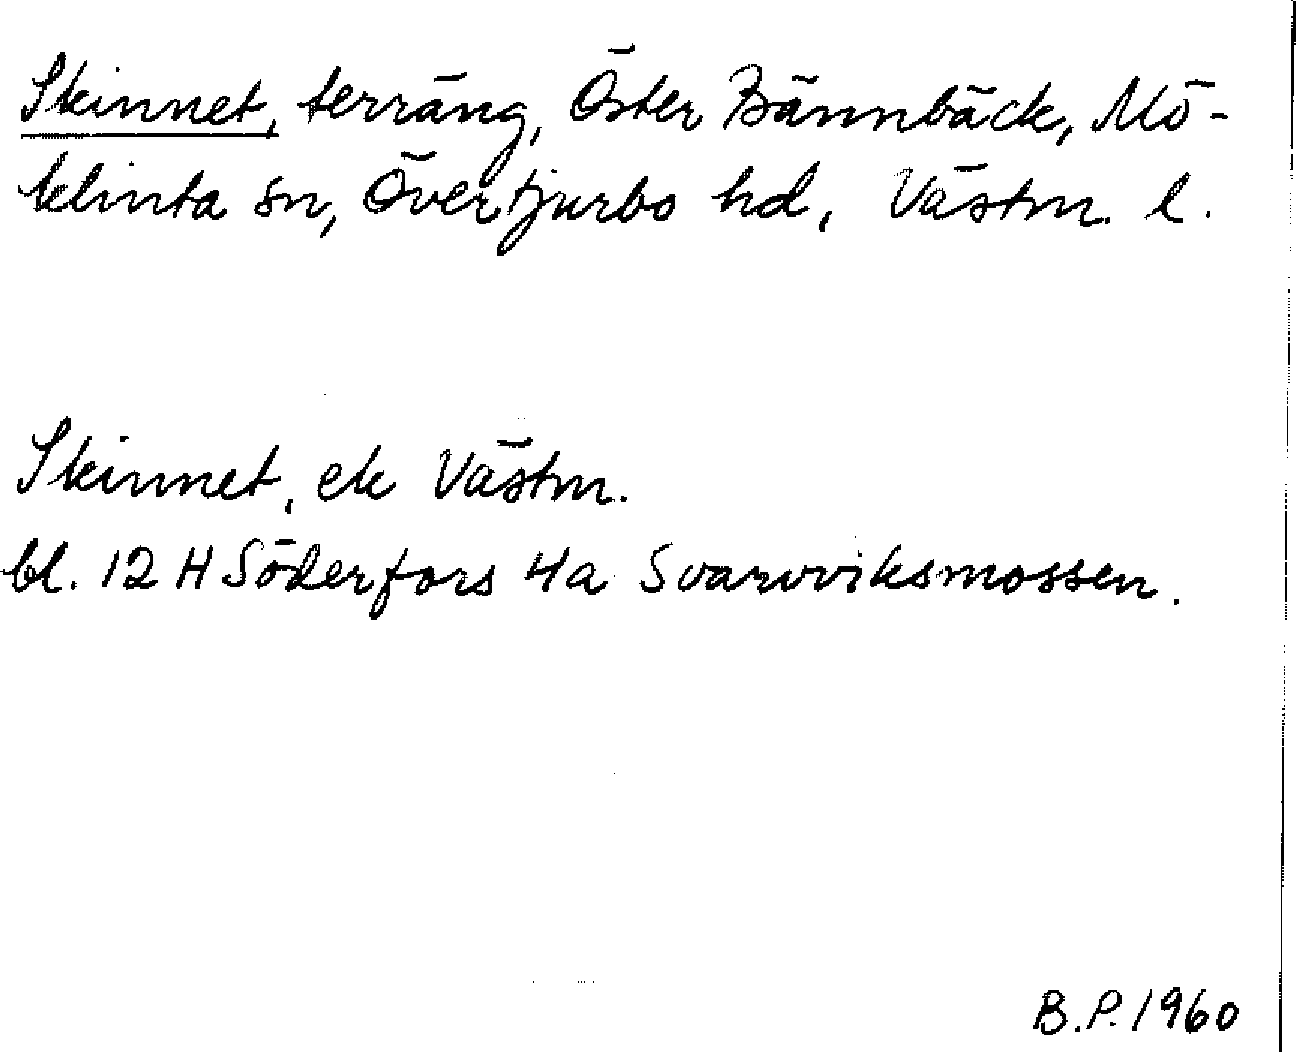 Skinnet, terräng, Öster Bännbäck, Mö-
klinta sn, Övertjurbo hd, Västm. l.
Skinnet, ek Västm.
bl. 12 H Söderfors 4a Svarvviksmossen.
B.P. 1960